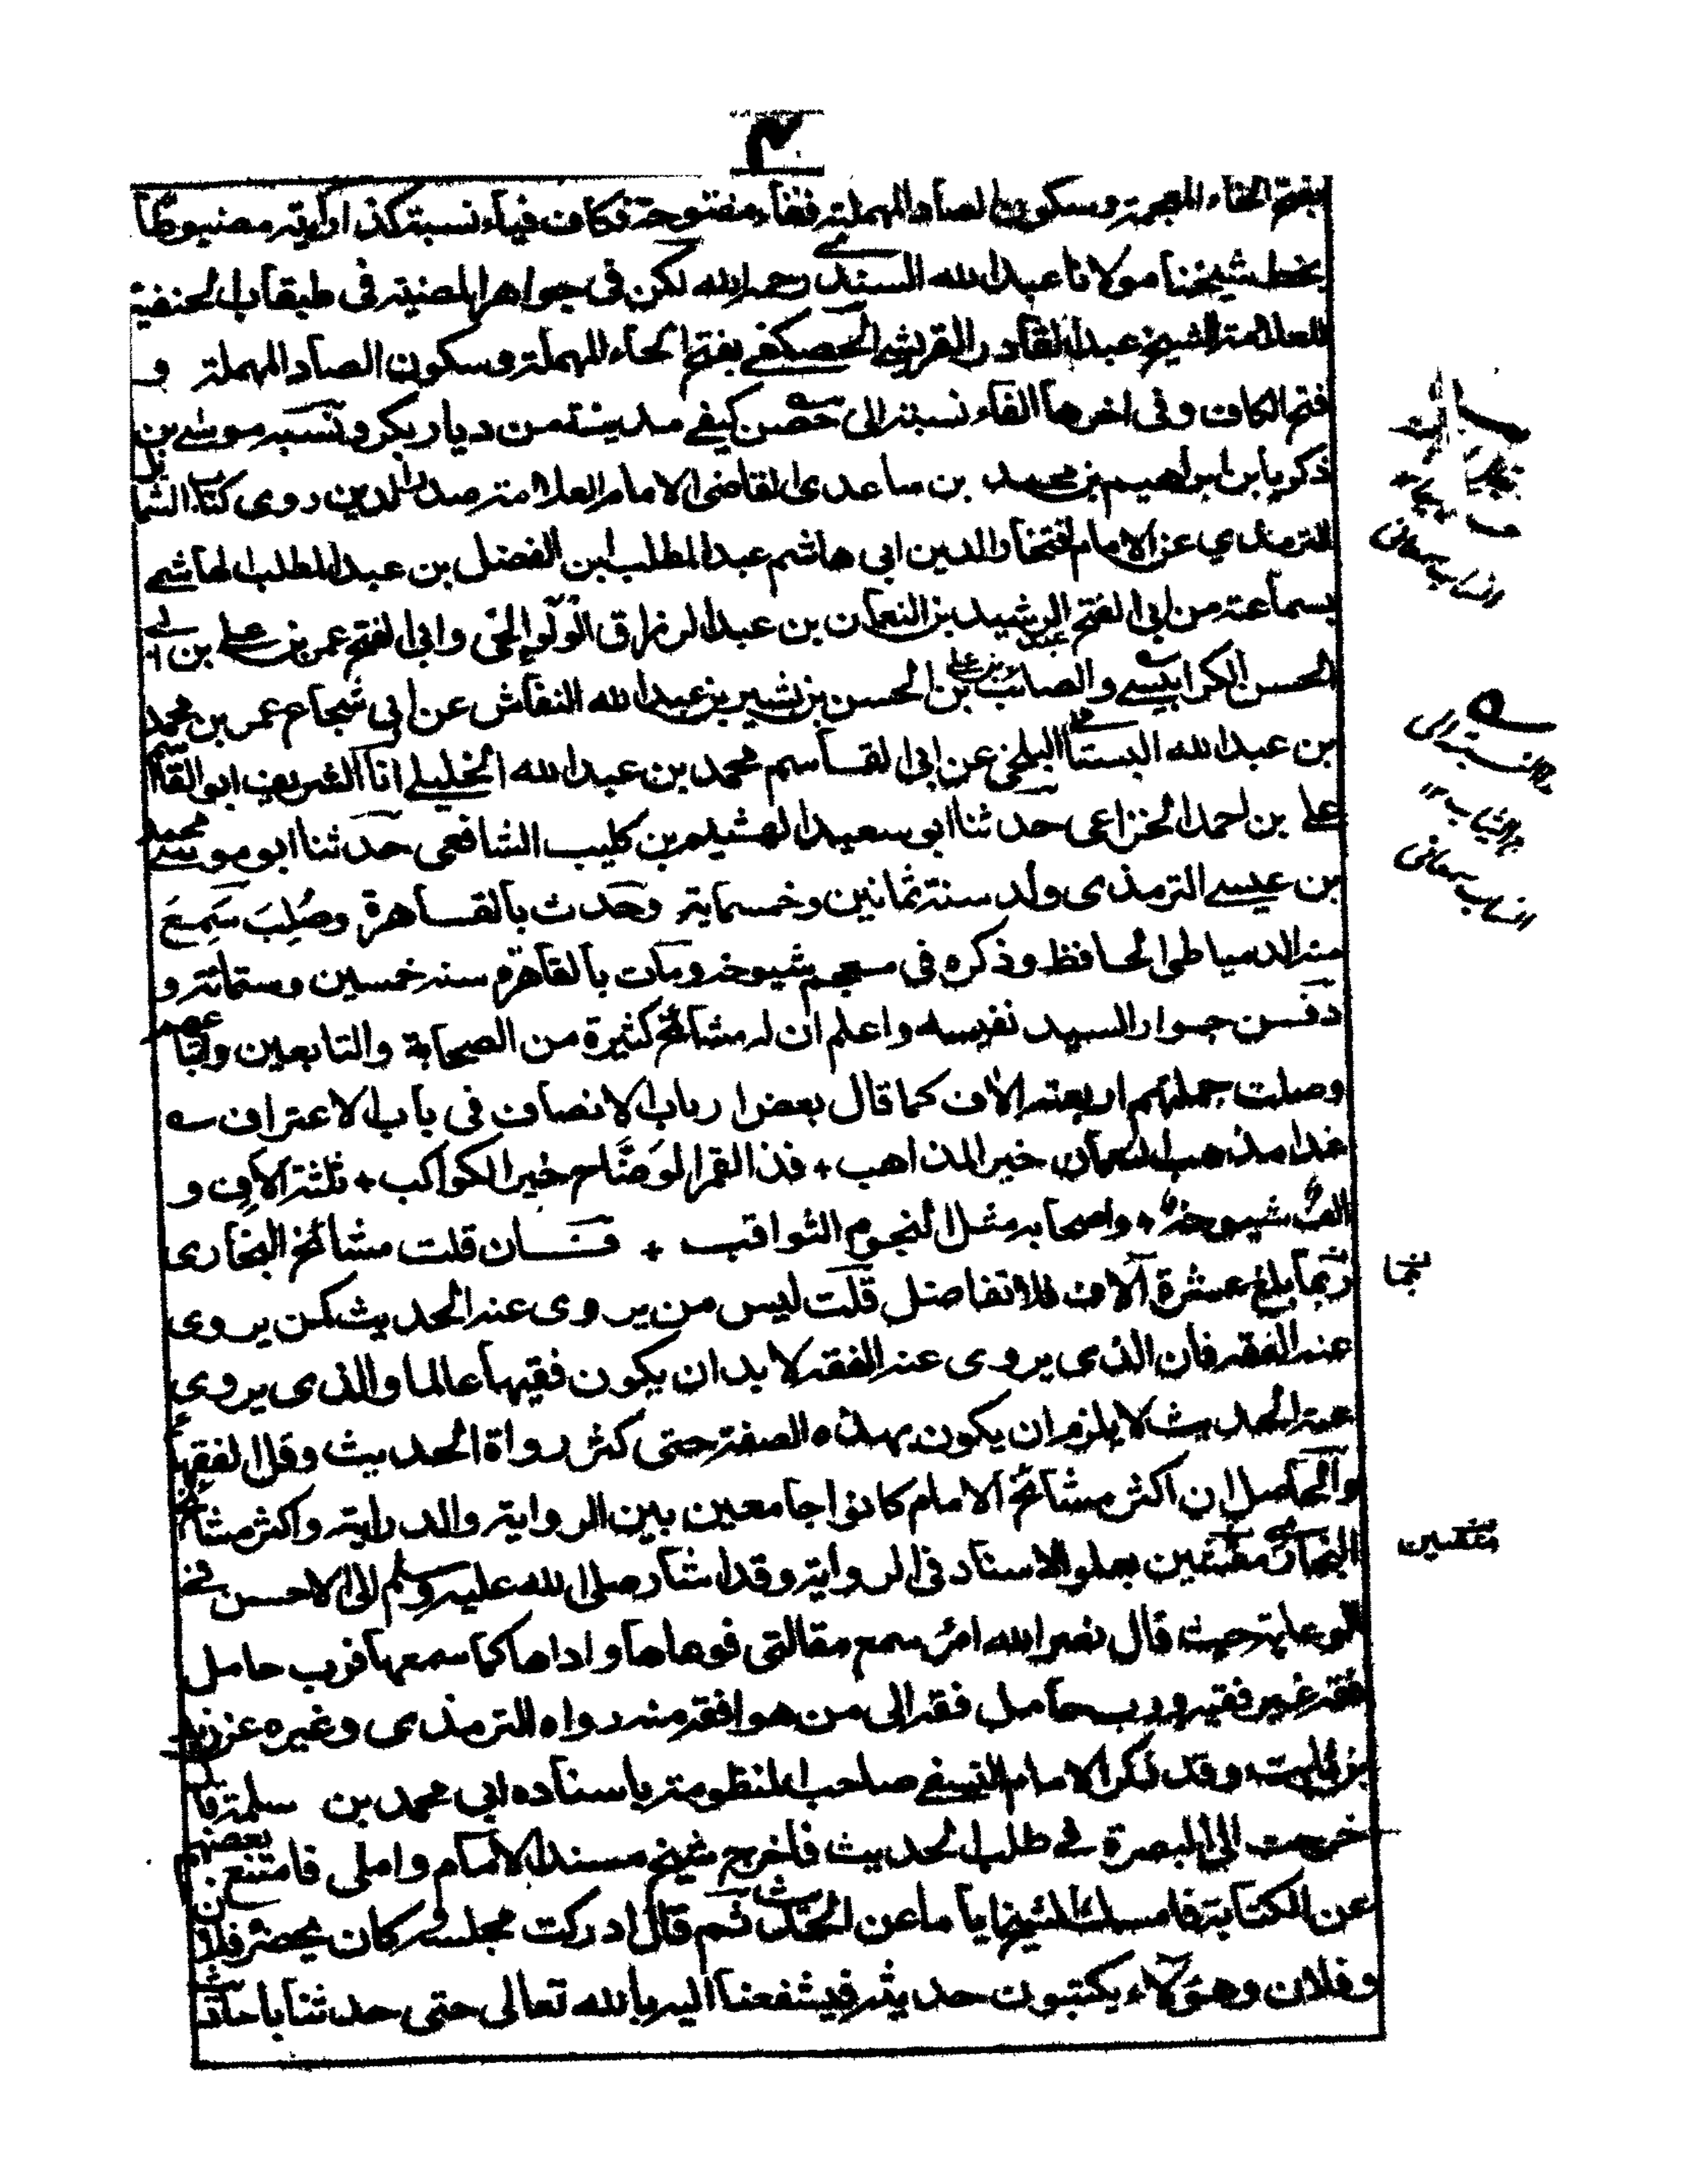 ٣
بفتح الخاء المعجمة وسكون الصاد المهملة ففاء مفتوحة فكاف فياء نسبة كذا رأيته مضبوطا
بخط شيخنا مولانا عبد الله السندي رحمه الله لكن في جواهر المضية في طبقات الحنفية
للعلامة الشيخ عبد القادر القرشي الحصكفي بفتح الحاء المهملة وسكون الصاد المهملة و
فتح الكاف وفي اخرها الفاء نسبة الى حصن كيفى مدينة من ديار بكر ونسبه موسى بن
ذكريا بن ابراهيم بن محمد بن ساعد القاضي الامام العلامة صدر الدين روى كتاب الشمائل
للترمذي عن الامام افتخار الدين ابي هاشم عبد المطلب ابن الفضل بن عبد المطلب الهاشمي
بسماعته من ابي الفتح عبد الرشيد بن النعمان بن عبد الرزاق الولوالجي وابي الفتح عمر بن علي بن ابي
الحسن الكرابيسي والصائب بن علي بن الحسن بن بشير بن عبد الله النقاش عن ابي شجاع عمر بن محمد
بن عبد الله البستامي البلخي عن ابي القاسم محمد بن عبد الله الخليلي انا الشريف ابو القاسم
علي بن احمد الخزاعي حدثنا ابو سعيد الهشيم بن كليب الشافعي حدثنا ابو موسى محمد
بن عيسى الترمذي ولد سنة ثمانين وخمسماية وحدث بالقاهرة وصُلِبَ سَمِعَ
منه الدمياطي الحافظ وذكره في معجم شيوخه ومات بالقاهرة سنه خمسين وستمائة و
دفن جوار السيد نفيسه واعلم ان له مشائخ كثيرة من الصحابة والتابعين واتباعهم
وصلت جملتهم اربعة الاف كما قال بعض ارباب الانصاف في باب الاعتراف ؎
غدا مذهب النعمان خير المذاهب + فذا القمر الوضّاح خير الكواكب + ثلثة الاف و
الف شيوخه + واصحابه مثل النجوم الثواقب + فان قلت مشائخ البخاري
ربما بلغ عشرة آلاف فلا تفاضل قلت ليس من يروى عنه الحديث كمن يروى
عنه الفقه فان الذى يروى عنه الفقه لا بد ان يكون فقيها عالما والذى يروى
عنه الحديث لا يلزم ان يكون بهذه الصفة حتى كثر رواة الحديث وقل الفقهاء
والحاصل ان اكثر مشائخ الامام كانوا جامعين بين الرواية والدراية واكثر مشائخ
البخاري مقتنعين بعلو الاسناد في الرواية وقد اشار صلى الله عليه وسلم الى الاحسن في
الوعاية حيث قال نضر الله امرأ سمع مقالتي فوعاها واداها كما سمعها فرب حامل
فقه غير فقيه ورب حامل فقه الى من هو افقه منه رواه الترمذى وغيره عن زيد
بن ثابت وقد ذكر الامام النسفي صاحب المنظومة باسناده ابي محمد بن سلمة قال
خرجت الى البصرة في طلب الحديث فاخرج شيخ مسند الامام واملى فامتنع بعضهم
عن الكتابة فامسك الشيخ اياما عن الحديث ثم قال ادركت مجلسه وكان يحضر فلان
وفلان وهؤلاء يكتبون حديثه فيشفعنا اليه بالله تعالى حتى حدثنا باحاديث
انساب سمعاني
انساب سمعاني